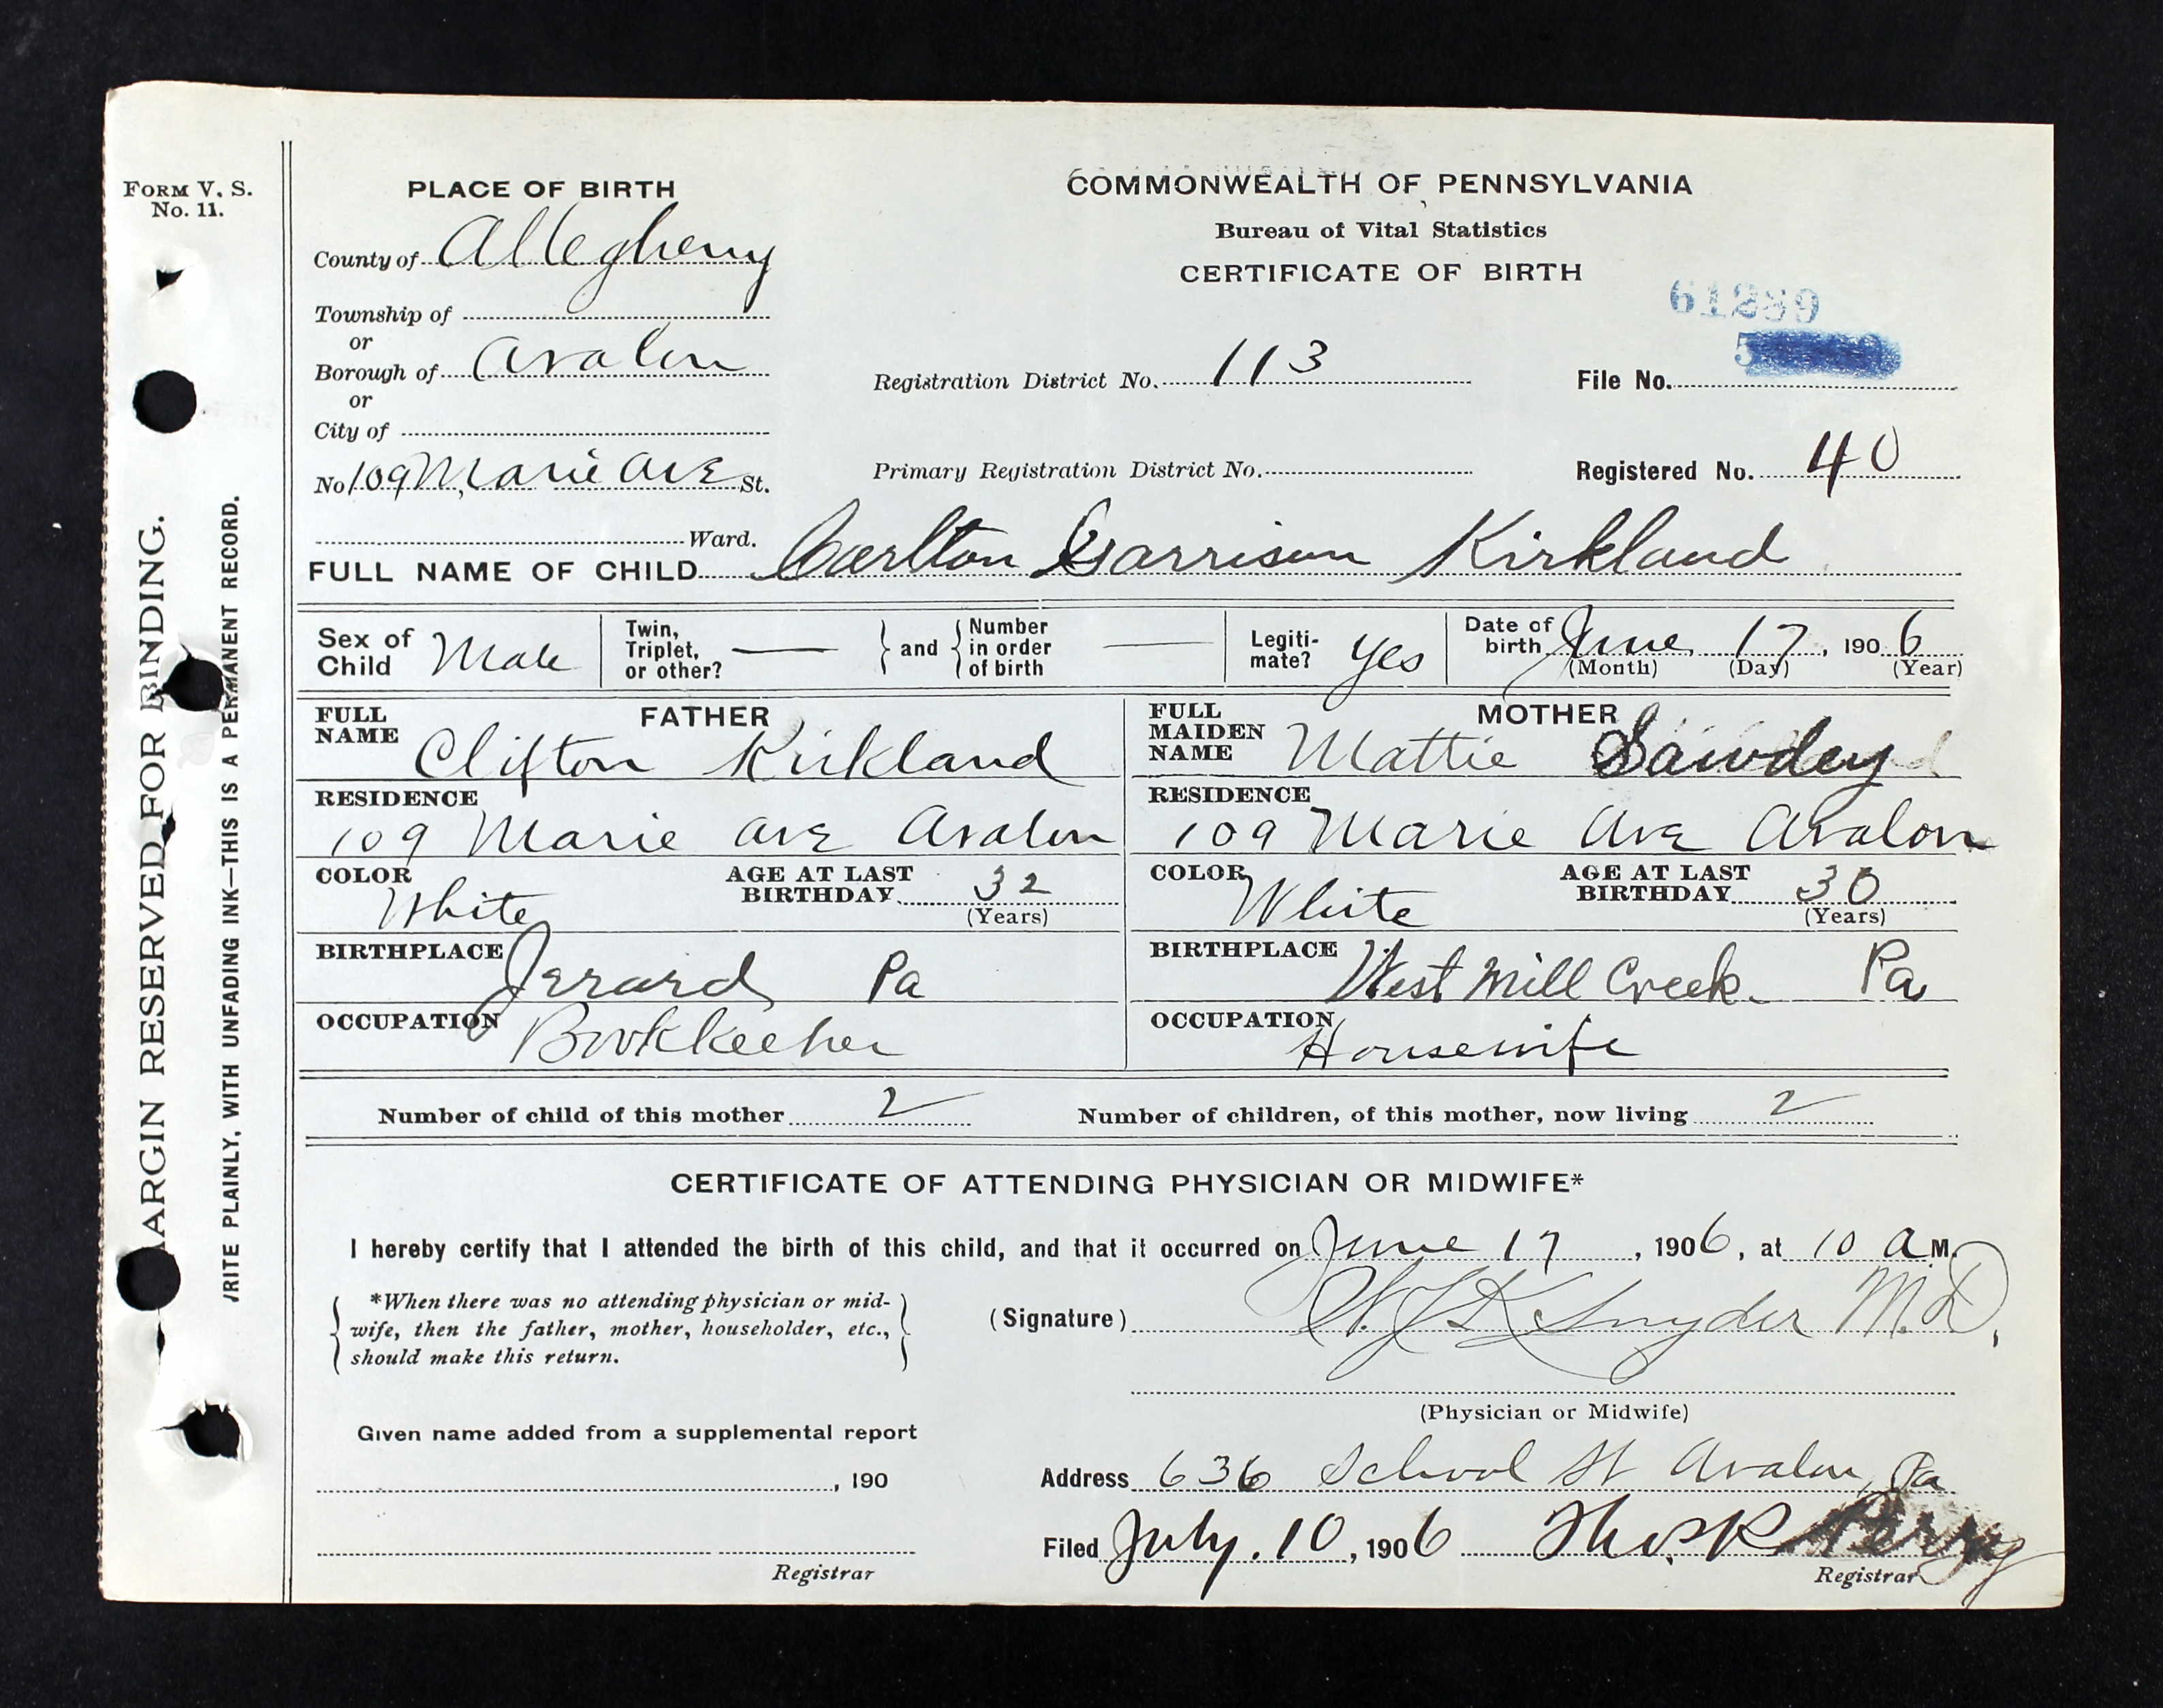 FORM V. S.
No. 11.
PLACE OF BIRTH
County of Allegheny
Township of
or
Borough of Avalon
or
City of
No 109 Marie Ave St.
Ward.
COMMONWEALTH OF PENNSYLVANIA
Bureau of Vital Statistics
CERTIFICATE OF BIRTH
61289
Registration District No. 113
File No.
Primary Registration District No.
Registered No. 40
FULL NAME OF CHILD Carlton Garrison Kirkland
Sex of Child Male
Twin, Triplet, or other? —
and
Number in order of birth —
Legiti-mate? yes
Date of birth June 17, 1906
(Month) (Day) (Year)
FATHER
FULL NAME Clifton Kirkland
RESIDENCE
109 Marie Ave Avalon
COLOR White
AGE AT LAST BIRTHDAY 32
(Years)
BIRTHPLACE Jerard Pa
OCCUPATION Bookkeeper
MOTHER
FULL MAIDEN NAME Mattie Sawdey
RESIDENCE
109 Marie Ave Avalon
COLOR White
AGE AT LAST BIRTHDAY 30
(Years)
BIRTHPLACE West Mill Creek Pa
OCCUPATION Housewife
Number of child of this mother 2
Number of children, of this mother, now living 2
CERTIFICATE OF ATTENDING PHYSICIAN OR MIDWIFE*
I hereby certify that I attended the birth of this child, and that it occurred on June 17, 1906, at 10 A M.
*When there was no attending physician or mid-
wife, then the father, mother, householder, etc.,
should make this return.
(Signature) Snyder M.D.
(Physician or Midwife)
Given name added from a supplemental report
, 190
Registrar
Address 636 School St Avalon, Pa
Filed July. 10, 1906 Thos. R Perry
Registrar
ARGIN RESERVED FOR BINDING.
RITE PLAINLY, WITH UNFADING INK—THIS IS A PERMANENT RECORD.